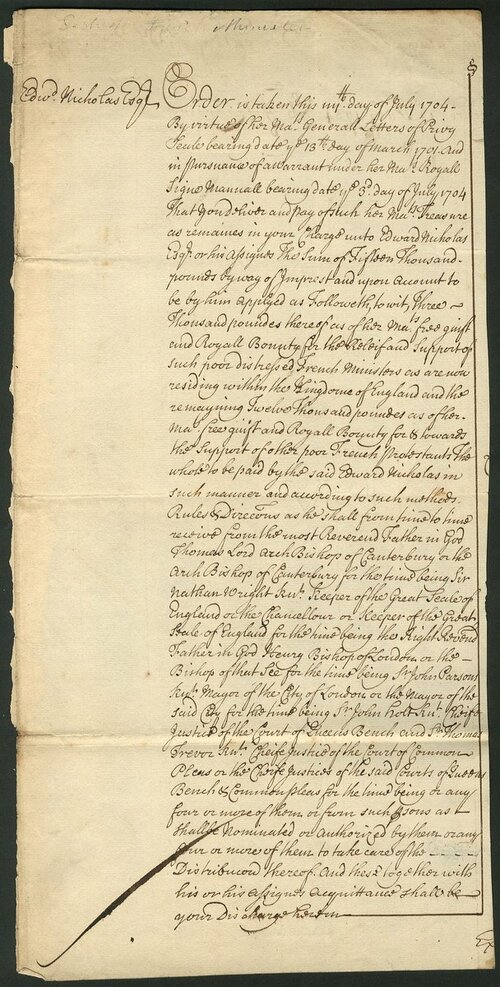 Minister
Edwd. Nicholas Esqr.
Order is taken this iiijth. day of July 1704
By virtue of her Mats. Generall Letters of Privy
Seale bearing date ye 13th. day of March 1701. And
in pursuance of a warrant under her Mats. Royall
Signe Manuall bearing date ye 3d. day of July 1704
That you deliver and pay of such her Mats. Treasure
as remaines in your Charge unto Edward Nicholas
Esqr. or his Assignes The Sum of Fifteen Thousand
pounds by way of Imprest and upon Account to
be by him applyed as Followeth, to wit, Three
Thousand poundes thereof as of her Mats. free guift
and Royall Bounty for the Releif and Support of
such poor distressed French Ministers as are now
residing within the Kingdome of England and the
remayning Twelve thousand poundes as of her
Mats. free guift and Royall Bounty for & towards
the Support of other poor French Protestants The
whole to be paid by the said Edward Nicholas in
such manner and according to such methods
Rules & Direccons as he shall from time to time
receive from the most Reverend Father in God
Thomas Lord Arch Bishop of Canterbury or the
Arch Bishop of Canterbury for the time being Sir
Nathan Wright Knt. Keeper of the Great Seale of
England or the Chancellour or Keeper of the Great
Seale of England for the time being the Right Reverd
Father in God Henry Bishop of London or the
Bishop of that See for the time being Sr. John Parsons
Knt. Mayor of the City of London or the Mayor of the
said City for the time being Sr. John Holt Knt. Cheife
Justice of the Court of Queens Bench and Sr. Thomas
Trevor Knt. Cheife Justice of the Court of Common
Pleas or the Cheife Justices of the said Courts of Queens
Bench & Common Pleas for the time being or any
four or more of them or from such psons as
shallbe Nominated or Authorized by them or any
four or more of them to take care of the
Distribucon thereof. And these together with
his or his Assignes Acquittance shall be
your Discharge herein
Ex